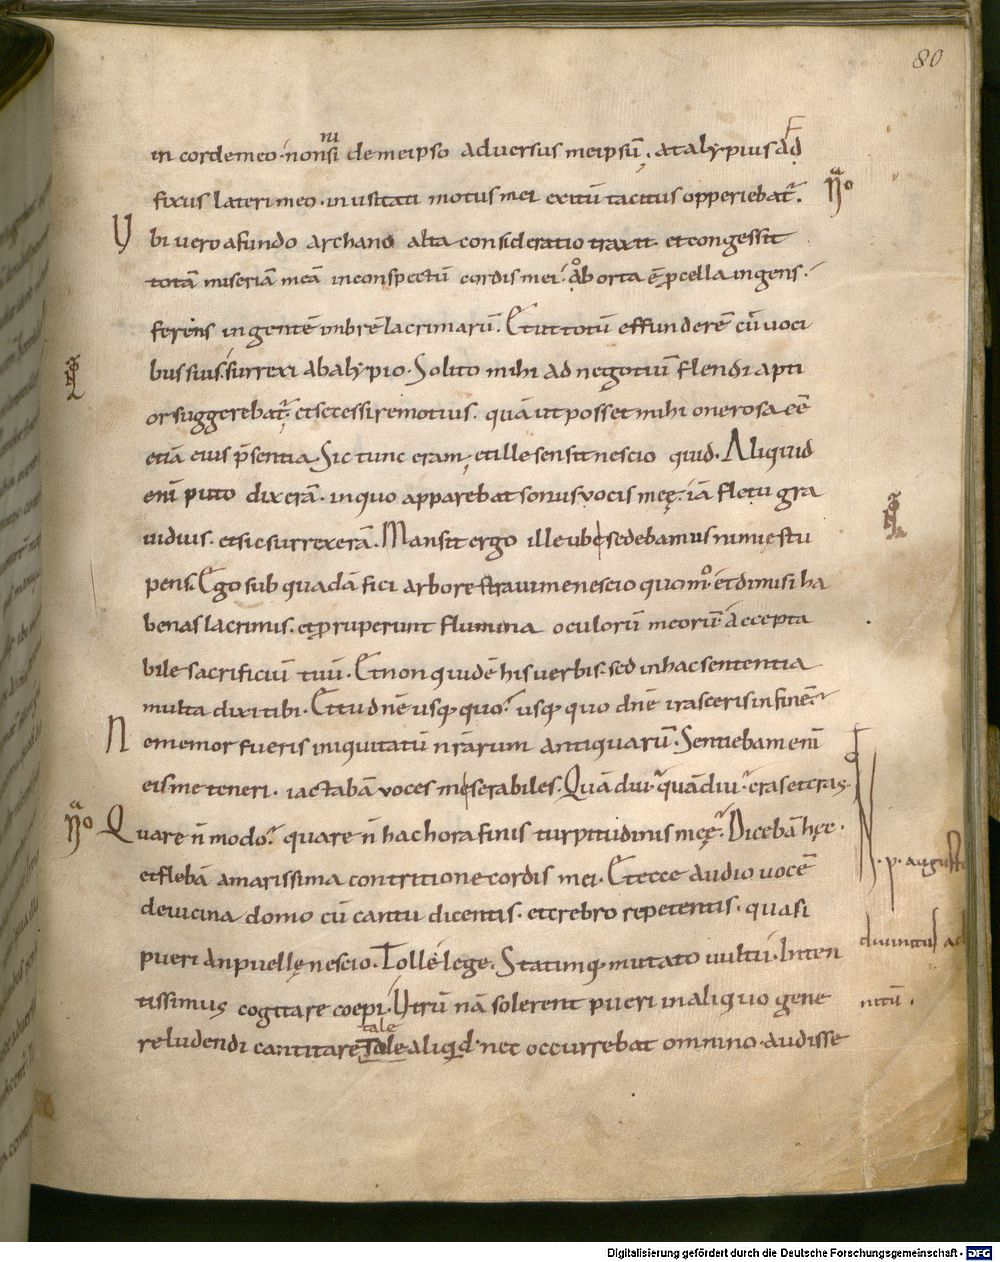 80
in corde meo · non nisi de me ipso adversus me ipsū, at alypius ad
fixus lateri meo · inusitati motus mei exitū tacitus opperiebat̄.
Ubi vero a fundo archano alta consideratio traxit · et congessit
totā miseriā meā in conspectū cordis mei · aborta ē ꝓcella ingens ·
ferens ingentē imbrē lacrimarū. Et ut totū effunderē cū voci
bus suis · surrexi ab alypio · Solito mihi ad negotiū flendi apti
or suggerebat̄ · et secessi remotius · quā ut posset mihi onerosa eē
etiā eius p̄sentia. Sic tunc eram, et ille sensit nescio quid. Aliquid
enī puto dixerā · in quo apparebat sonus vocis meę · iā fletu gra
uidius · et sic surrexerā. Mansit ergo ille ubi sedebamus nimie stu
pens. Ego sub quadā fici arbore stravi me nescio quomo · et dimisi ha
benas lacrimis · et ꝓruperunt flumina oculorū meorū · Accepta
bile sacrificiū tuū. Et non quidē his verbis · sed in hac sententia
multa dixi tibi · Et tu dn̄e usq; quo · usq; quo dn̄e irasceris in finē
Ne memor fueris iniquitatū nrārum antiquarū. Sentiebam enī
eis me teneri · iactabā voces miserabiles. Quā diu · quā diu · cras et cras.
Quare n̄ modo · quare n̄ hac hora finis turpitudinis meę. Dicebā hęc ·
et flebā amarissima contritione cordis mei. Et ecce audio vocē
de vicina domo cū cantu dicentis · et crebro repetentis · quasi
pueri an puellę nescio. Tolle lege. Statimq; mutato vultu · Inten
tissimus cogitare coepi. Utrū nā solerent pueri in aliquo gene
re ludendi cantitare tale aliqd · nec occurrebat omnino · audisse
tale
N. p. augusti
divinitus ad
nitū .
Digitalisierung gefördert durch die Deutsche Forschungsgemeinschaft - DFG